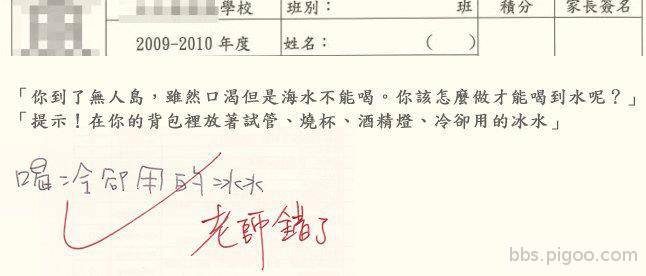 學校 班別： 班 積分 家長簽名
2009-2010 年度 姓名： ( )
「你到了無人島，雖然口渴但是海水不能喝。你該怎麼做才能喝到水呢？」
「提示！在你的背包裡放著試管、燒杯、酒精燈、冷卻用的冰水」
喝冷卻用的冰水
老師錯了
bbs.pigoo.com